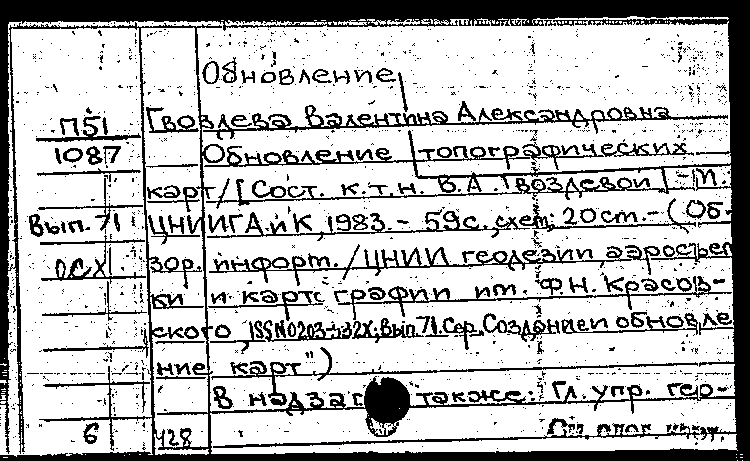 Обновление
Гвоздева, Валентина Александровна
П51
1087
Обновление топографических
карт/[Сост. к.т.н. В.А.Гвоздевой].-М.
Вып. 71
ЦНИИГАиК, 1983.- 59с., схем; 20см.-(Об-
зор. информ./ЦНИИ геодезии, аэросъем
ки и картографии им. Ф.Н. Красов-
ского, ISSN0203-332X; Вып.71. Сер. Создание и обновле
ние карт".)
В надзаг также: Гл. упр. гео-
6
428
См. след. карт.